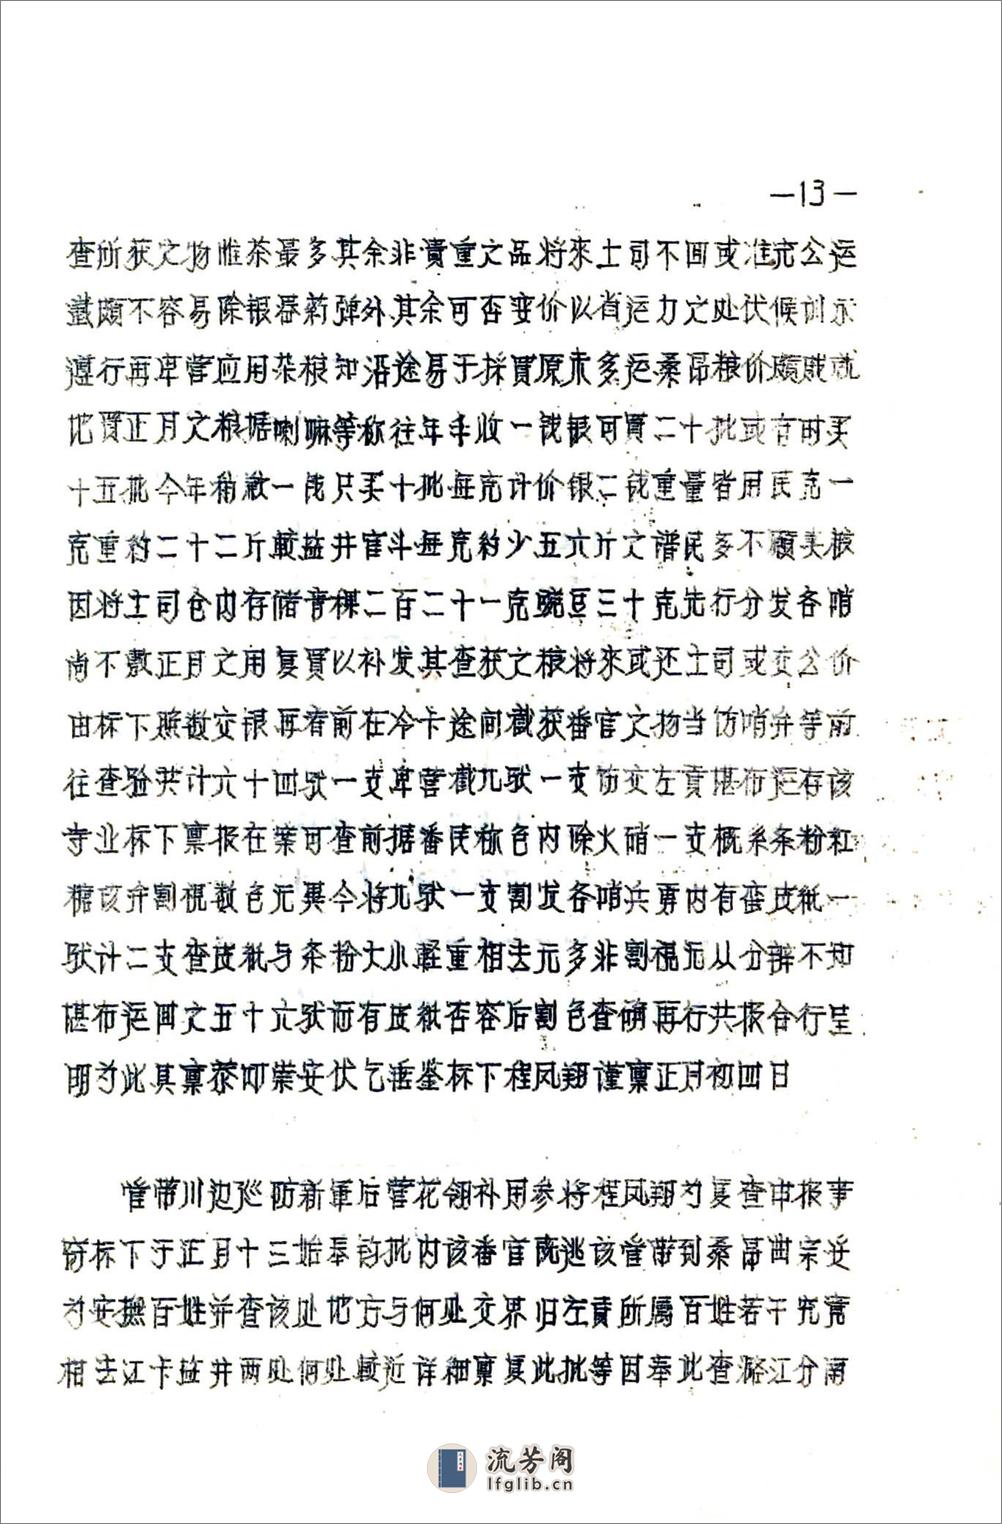 —13—
查所获之物惟茶最多其余非貴重之品将来土司不回或准充公运
盐頗不容易除银器药弹外其余可否变价以省运力之处伏候训示
遵行再卑营应用杂粮知沿途易于採買原未多运桑昂粮价頗贱就
地買正月之粮据喇嘛等称往年丰收一钱银可買二十批或有时买
十五批今年稍歉一钱只买十批每克计价银二钱重量皆用民克一
克重約二十二斤較盐井官斗每克約少五六斤之谱民多不願卖粮
因将土司仓内存储青稞二百二十一克豌豆三十克先行分发各哨
尚不敷正月之用复買以补发其查获之粮将来或还土司或交公价
由标下照数交银再看前在冷卡途间截获番官之物当饬哨弁等前
往查验共计六十四驮一支卑营截九驮一支饬交左貢堪布运存该
寺业标下禀报在案可查前据番民称包内除火硝一支概系条粉紅
糖该弁割視数包无異今将九驮一支割发各哨兵勇内有蛮皮紙一
驮计二支查皮紙与条粉大小軽重相去无多非割視无从分辨不知
堪布运回之五十六驮而有皮紙否容后割包查确再行共报合行呈
明为此具禀恭叩崇安伏乞垂鉴标下程凤翔谨禀正月初四日
管带川边巡防新軍后营花翎补用参将程凤翔为复查申报事
窃标下于正月十三始奉鈞批内该番官既逃该管带到桑昂曲宗迋
为安撫百姓并查该处地方与何处交界归左貢所属百姓若干究竟
相去江卡盐井两处何处較近详細禀复此批等因奉此查潞江分南
流芳阁
lfglib.cn